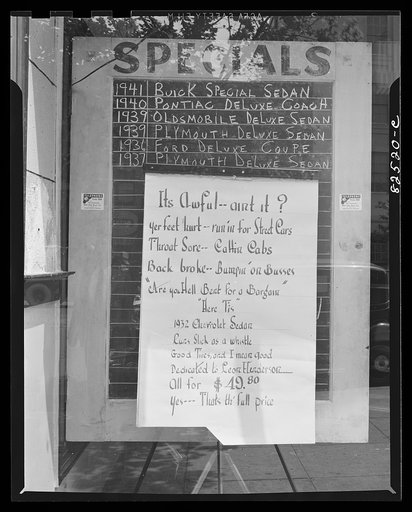 SPECIALS
1941 BUICK SPECIAL SEDAN
1940 PONTIAC DELUXE COACH
1939 OLDSMOBILE DELUXE SEDAN
1939 PLYMOUTH DELUXE SEDAN
1936 FORD DELUXE COUPE
1937 PLYMOUTH DELUXE SEDAN
Its Awful-- aint it ?
yer feet hurt-- run'in for Street Cars
Throat Sore-- Callin Cabs
Back broke-- Bumpin' on Busses
"Are you Hell Bent for a Bargain"
"Here Tis"
1932 Chevrolet Sedan
Runs Slick as a whistle
Good Tires, and I mean good
Dedicated to Leon Henderson
All for $49.80
yes--- Thats th' full price
82520-E